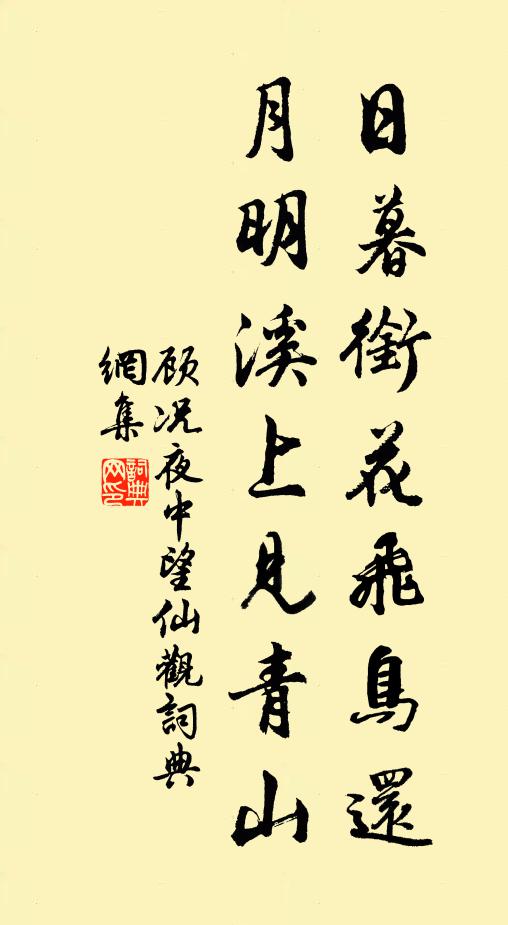 日暮銜花飛鳥還
月明溪上見青山
顾况夜中望仙觀詞典
網集
詞典
网印